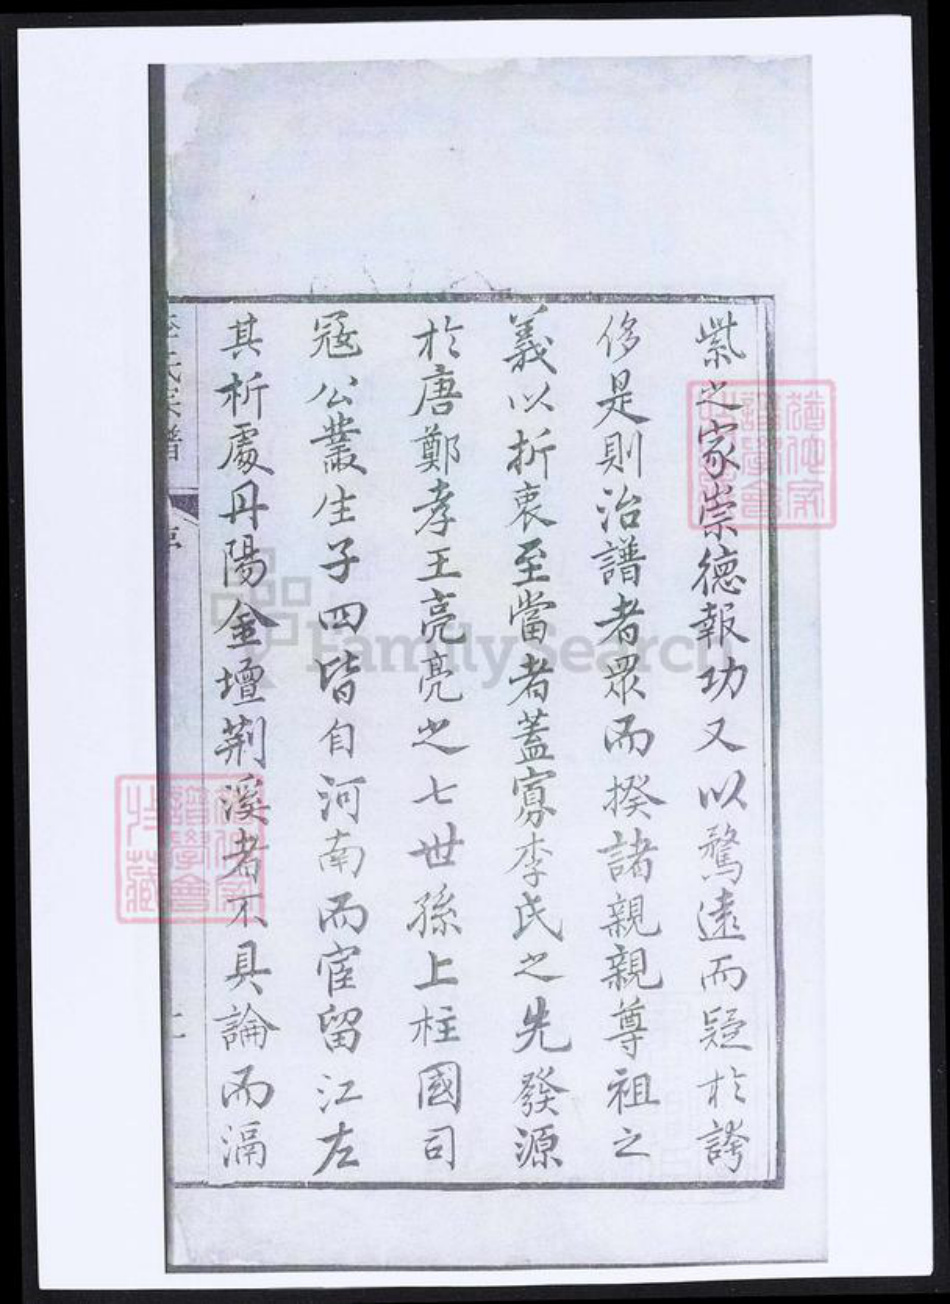 紫之家崇德報功又以騖遠而疑於誇
侈是則治譜者眾而揆諸親親尊祖之
義以折衷至當者蓋寡李氏之先發源
於唐鄭孝王亮亮之七世孫上柱國司
冦公叢生子四皆自河南而宦留江左
其析處丹陽金壇荆溪者不具論而滆
李氏家譜
序
FamilySearch
譜學會
藏